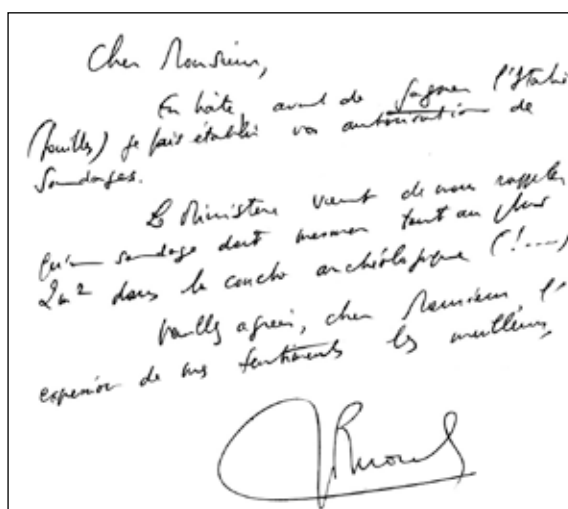 Cher Monsieur,
En hâte, avant de gagner l'Italie
(fouilles) je fais établir vos autorisations de
sondages.
Le Ministère vient de nous rappeler
qu'un sondage doit mesurer tout au plus
2 m² dans la couche archéologique (!....)
Veuillez agréer, cher Monsieur, l'
expression de mes sentiments les meilleurs,